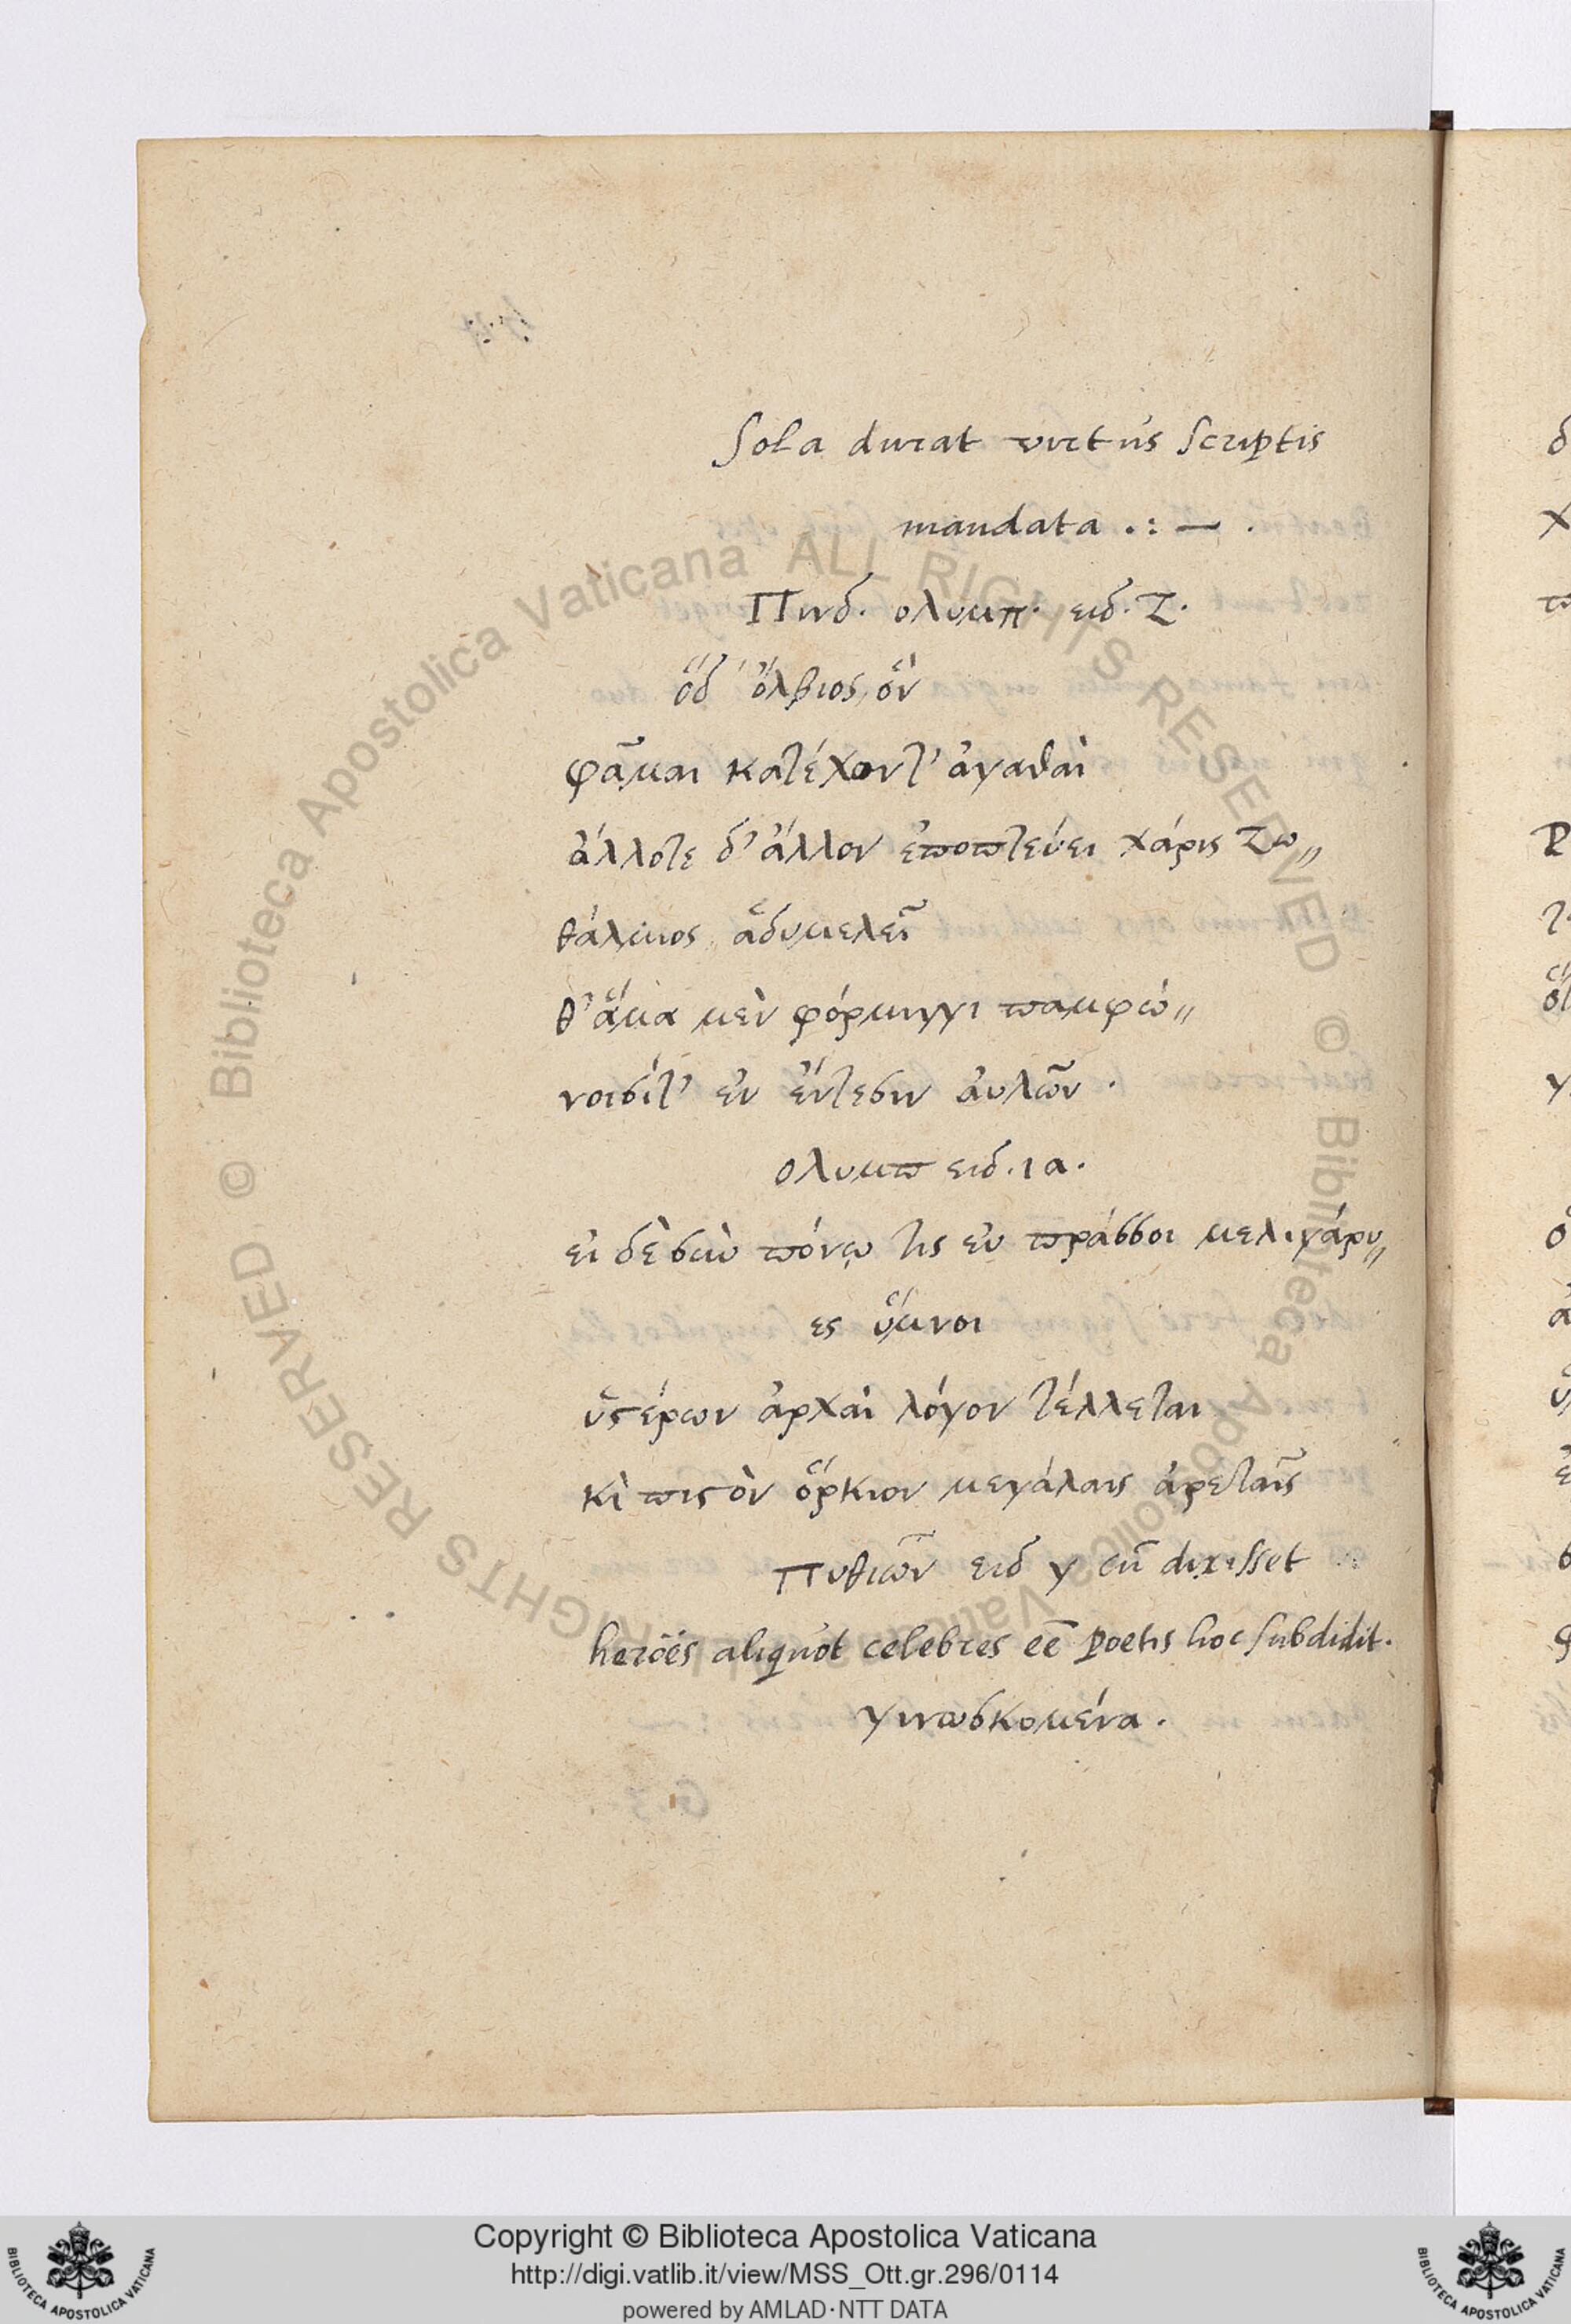 Sola durat virtus scriptis
mandata .:—.
Πινδ. ολυμπ. ειδ. ζ.
ὅδ' ὄλβιος, ὅν
φᾶμαι κατέχοντ' ἀγαθαὶ
ἄλλοτε δ' ἄλλον ἐποπτεύει χάρις ζω〃
θάλμιος, ἁδυμελεῖ
θ' ἅμα μὲν φόρμιγγι παμφώ〃
νοισίτ' ἐν ἔντεσιν ἀυλῶν.
ολυμπ ειδ. ια.
εἰ δὲ σὺν πόνῳ τις εὐ πράσσοι μελιγάρυ〃
ες ὕμνοι
ὑστέρων ἀρχαὶ λόγον τέλλεται
κὶ πιστὸν ὅρκιον μεγάλαις ἀρεταῖς
Πυθιῶν ειδ γ cū dixisset
heroës aliquot celebres eē Poetis hoc subdidit.
γινωσκομένα.
Copyright © Biblioteca Apostolica Vaticana
http://digi.vatlib.it/view/MSS_Ott.gr.296/0114
powered by AMLAD·NTT DATA